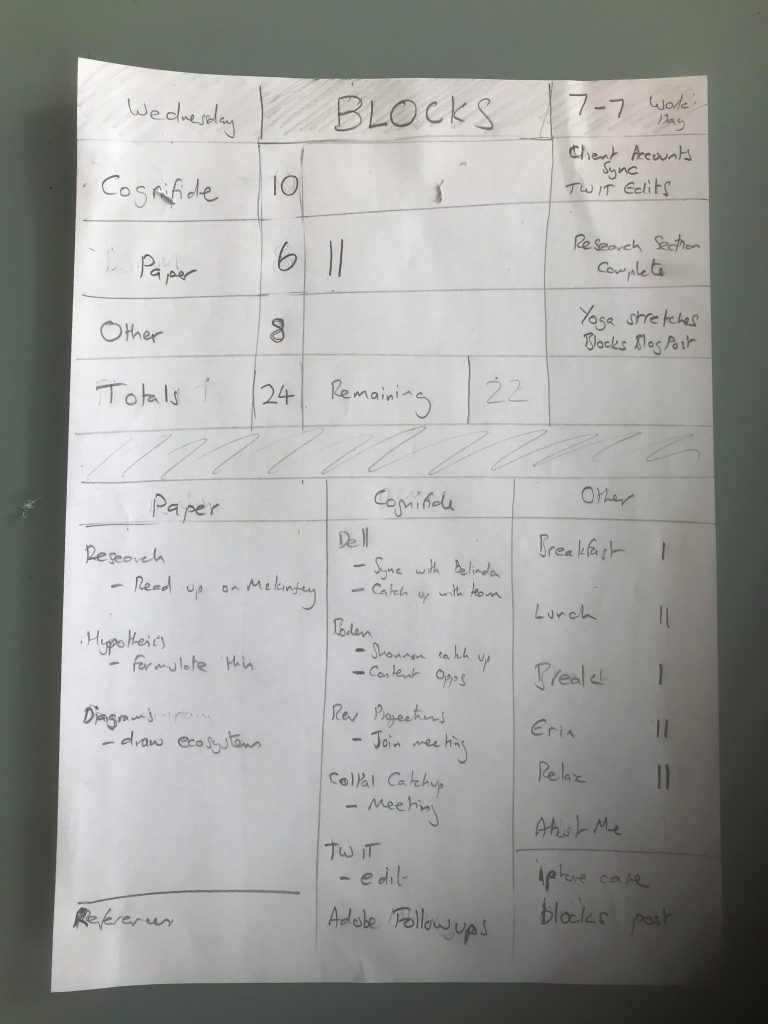 Wednesday BLOCKS 7-7 Work Day
Cognifide 10 Client Accounts
Sync
TWIT Edits
Paper 6 || Research Section
Complete
Other 8 Yoga stretches
Blocks Blog Post
Totals 24 Remaining 22
Paper Cognifide Other
Research
- Read up on
Hypothesis
- formulate
Diagrams
- draw ecosystem
References
Dell
- Sync with Belinda
- Catch up with team
Boden
- Shannon catch up
- Content Opps
Rev Projections
- Join meeting
Catchup
- Meeting
TWIT
- edit
Adobe Followups
Breakfast |
Lunch ||
Break |
Erin ||
Relax ||
About Me
iphone case
blocks post